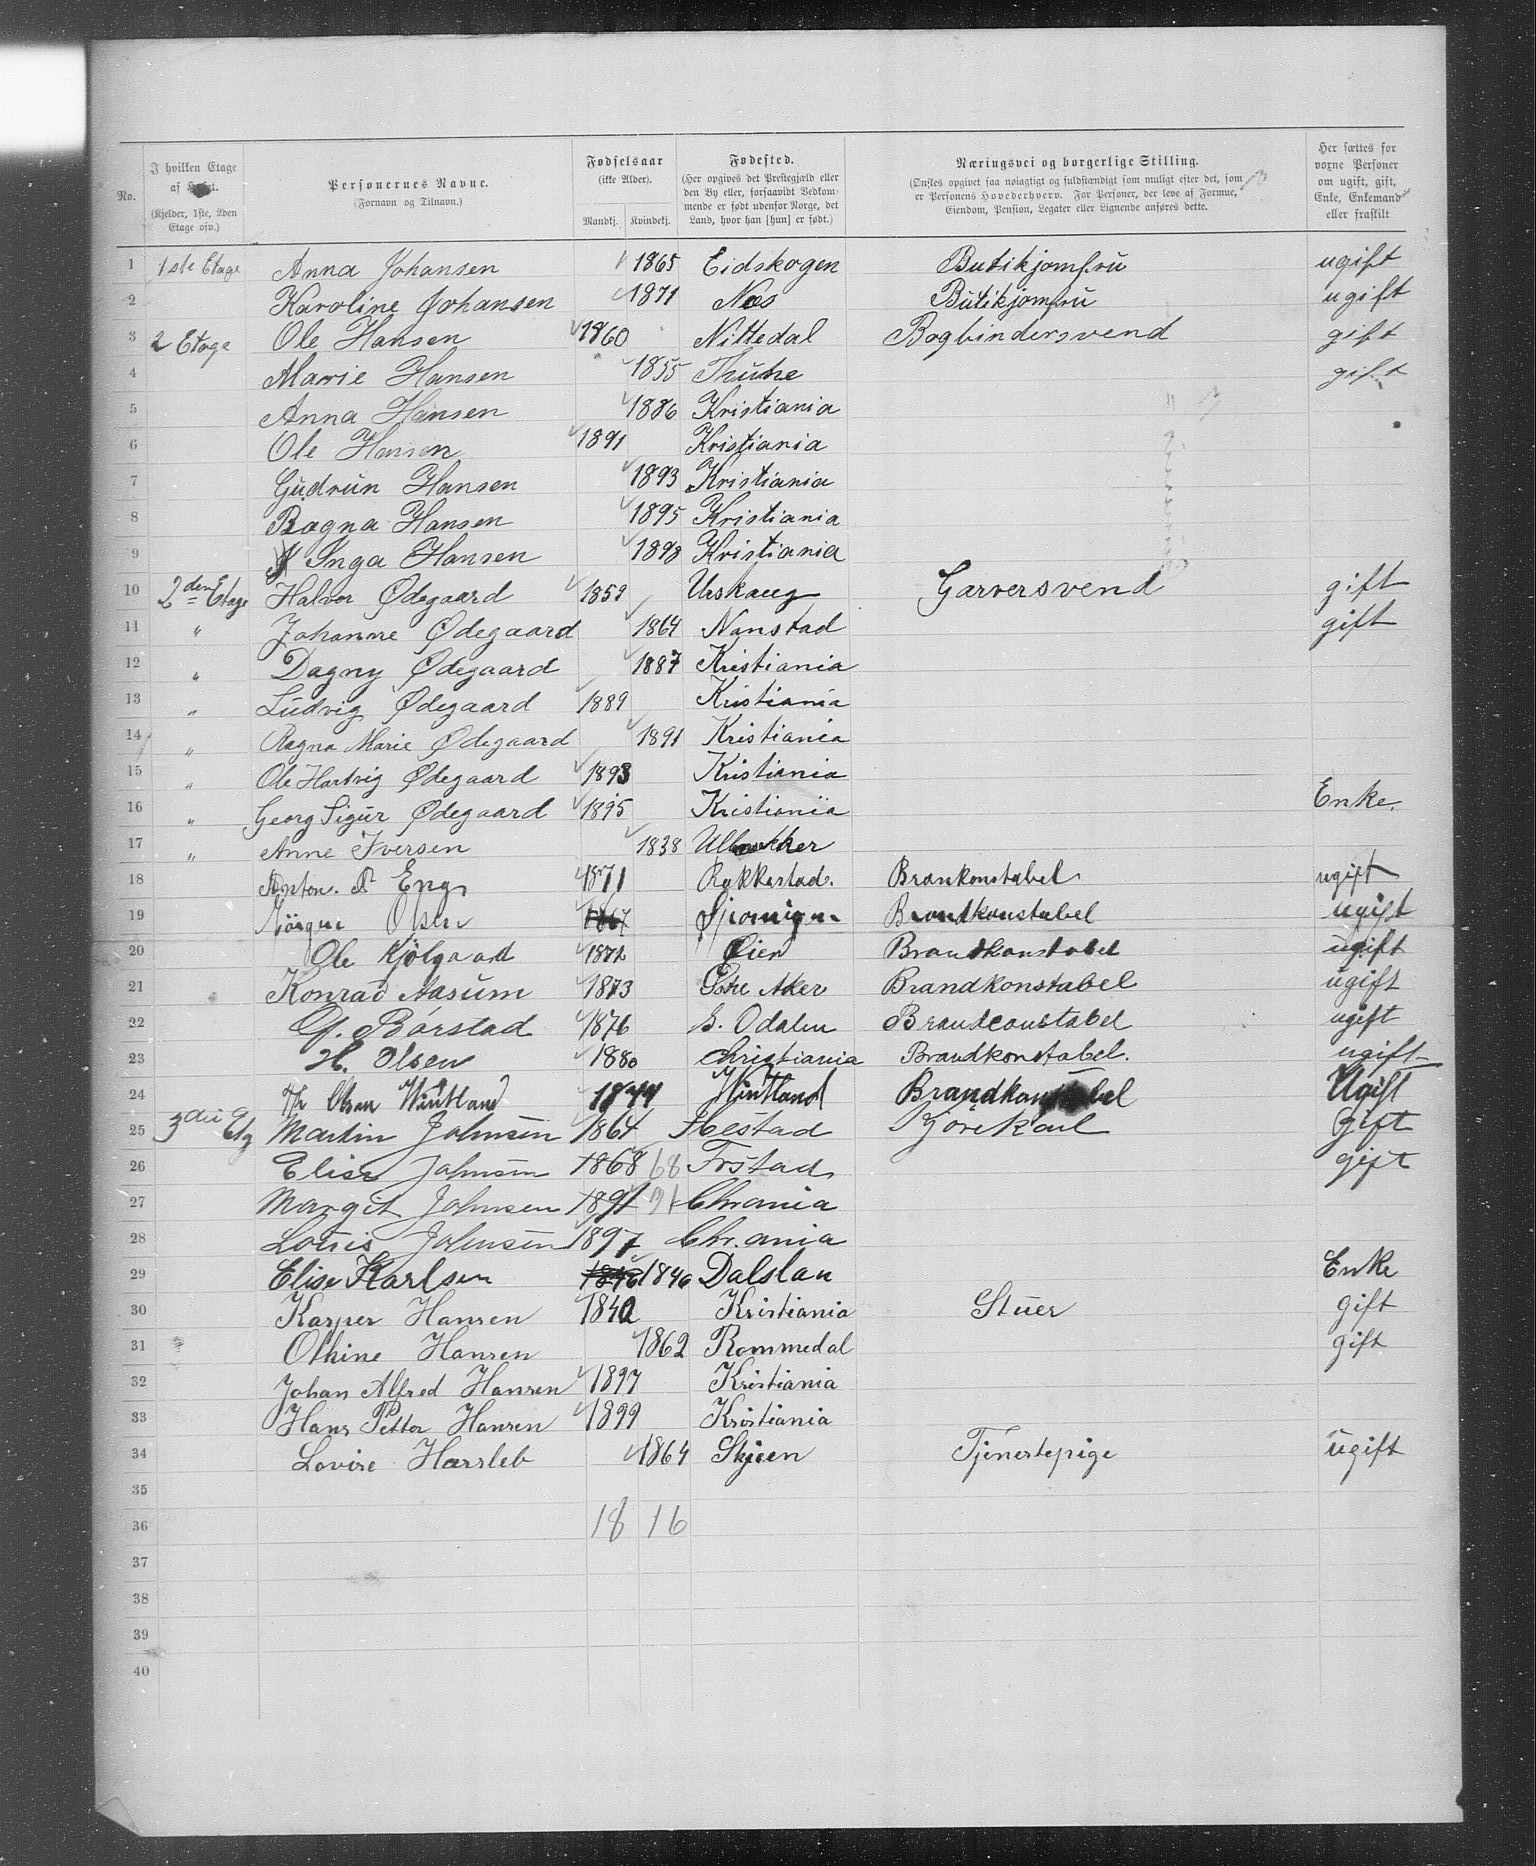 No.
I hvilken Etage af Huset. (Kjelder, 1ste, 2den Etage osv.)
Personernes Navne. (Fornavn og Tilnavn.)
Fødselsaar (ikke Alder). Mandkj. Kvindekj.
Fødested. (Her opgives det Præstegjæld eller den By eller, forsaavidt Vedkommende er født udenfor Norge, det Land, hvor han [hun] er født.)
Næringsvei og borgerlige Stilling. (Ønskes opgivet saa nøiagtigt og fuldstændigt som muligt efter det, som er Personens Hovederhverv. For Personer, der leve af Formue, Eiendom, Pension, Legater eller Lignende anføres dette.
Her sættes for voxne Personer om ugift, gift, Enke, Enkemand eller fraskilt
1 1ste Etage Anna Johansen 1865 Eidskogen Butikjomfru ugift
2 Karoline Johansen 1871 Næs Butikjomfru ugift
3 2 Etage Ole Hansen 1860 Nittedal Bogbindersvend gift
4 Marie Hansen 1855 gift
5 Anna Hansen 1886 Kristiania
6 Ole Hansen 1891 Kristiania
7 Gudrun Hansen 1893 Kristiania
8 Ragna Hansen 1895 Kristiania
9 Inga Hansen 1898 Kristiania
10 2den Etage Halvor Ødegaard 1859 Urskaug Garversvend gift
11 " Johanne Ødegaard 1864 Nanstad gift
12 " Dagny Ødegaard 1887 Kristiania
13 " Ludvig Ødegaard 1889 Kristiania
14 " Ragna Marie Ødegaard 1891 Kristiania
15 " Ole Hartvig Ødegaard 1893 Kristiania
16 " Georg Sigur Ødegaard 1895 Kristiania Enke.
17 " Anne Iversen 1838
18 Anton. Eng 1871 Rakkestad. Brankonstabel ugift
19 Olsen 1867 Brandkonstabel ugift
20 Ole Kjølgaard 1872 Øien Brandkonstabel ugift
21 Konrad Aasum 1873 Østre Aker Brandkonstabel ugift
22 Børstad 1876 S. Odalen Brandconstabel ugift
23 H. Olsen 1880 Christiania Brandkonstabel. ugift
24 Olsen 1877 Brandkonstabel Ugift
25 3die Etg Martin Johnsen 1864 Kjørekarl Gift
26 Elise Johnsen 1868 68 gift
27 Margit Johnsen 1891 91 Chrania
28 Louis Johnsen 1897 Chr.ania
29 Elise Karlsen 1846 1846 Dalslan Enke
30 Kasper Hansen 1840 Kristiania Stuer gift
31 Othine Hansen 1862 Rommedal gift
32 Johan Alfred Hansen 1897 Kristiania
33 Hans Petter Hansen 1899 Kristiania
34 Lovise Harsleb 1864 Skjeen Tjenestepige ugift
35
36 18 16
37
38
39
40